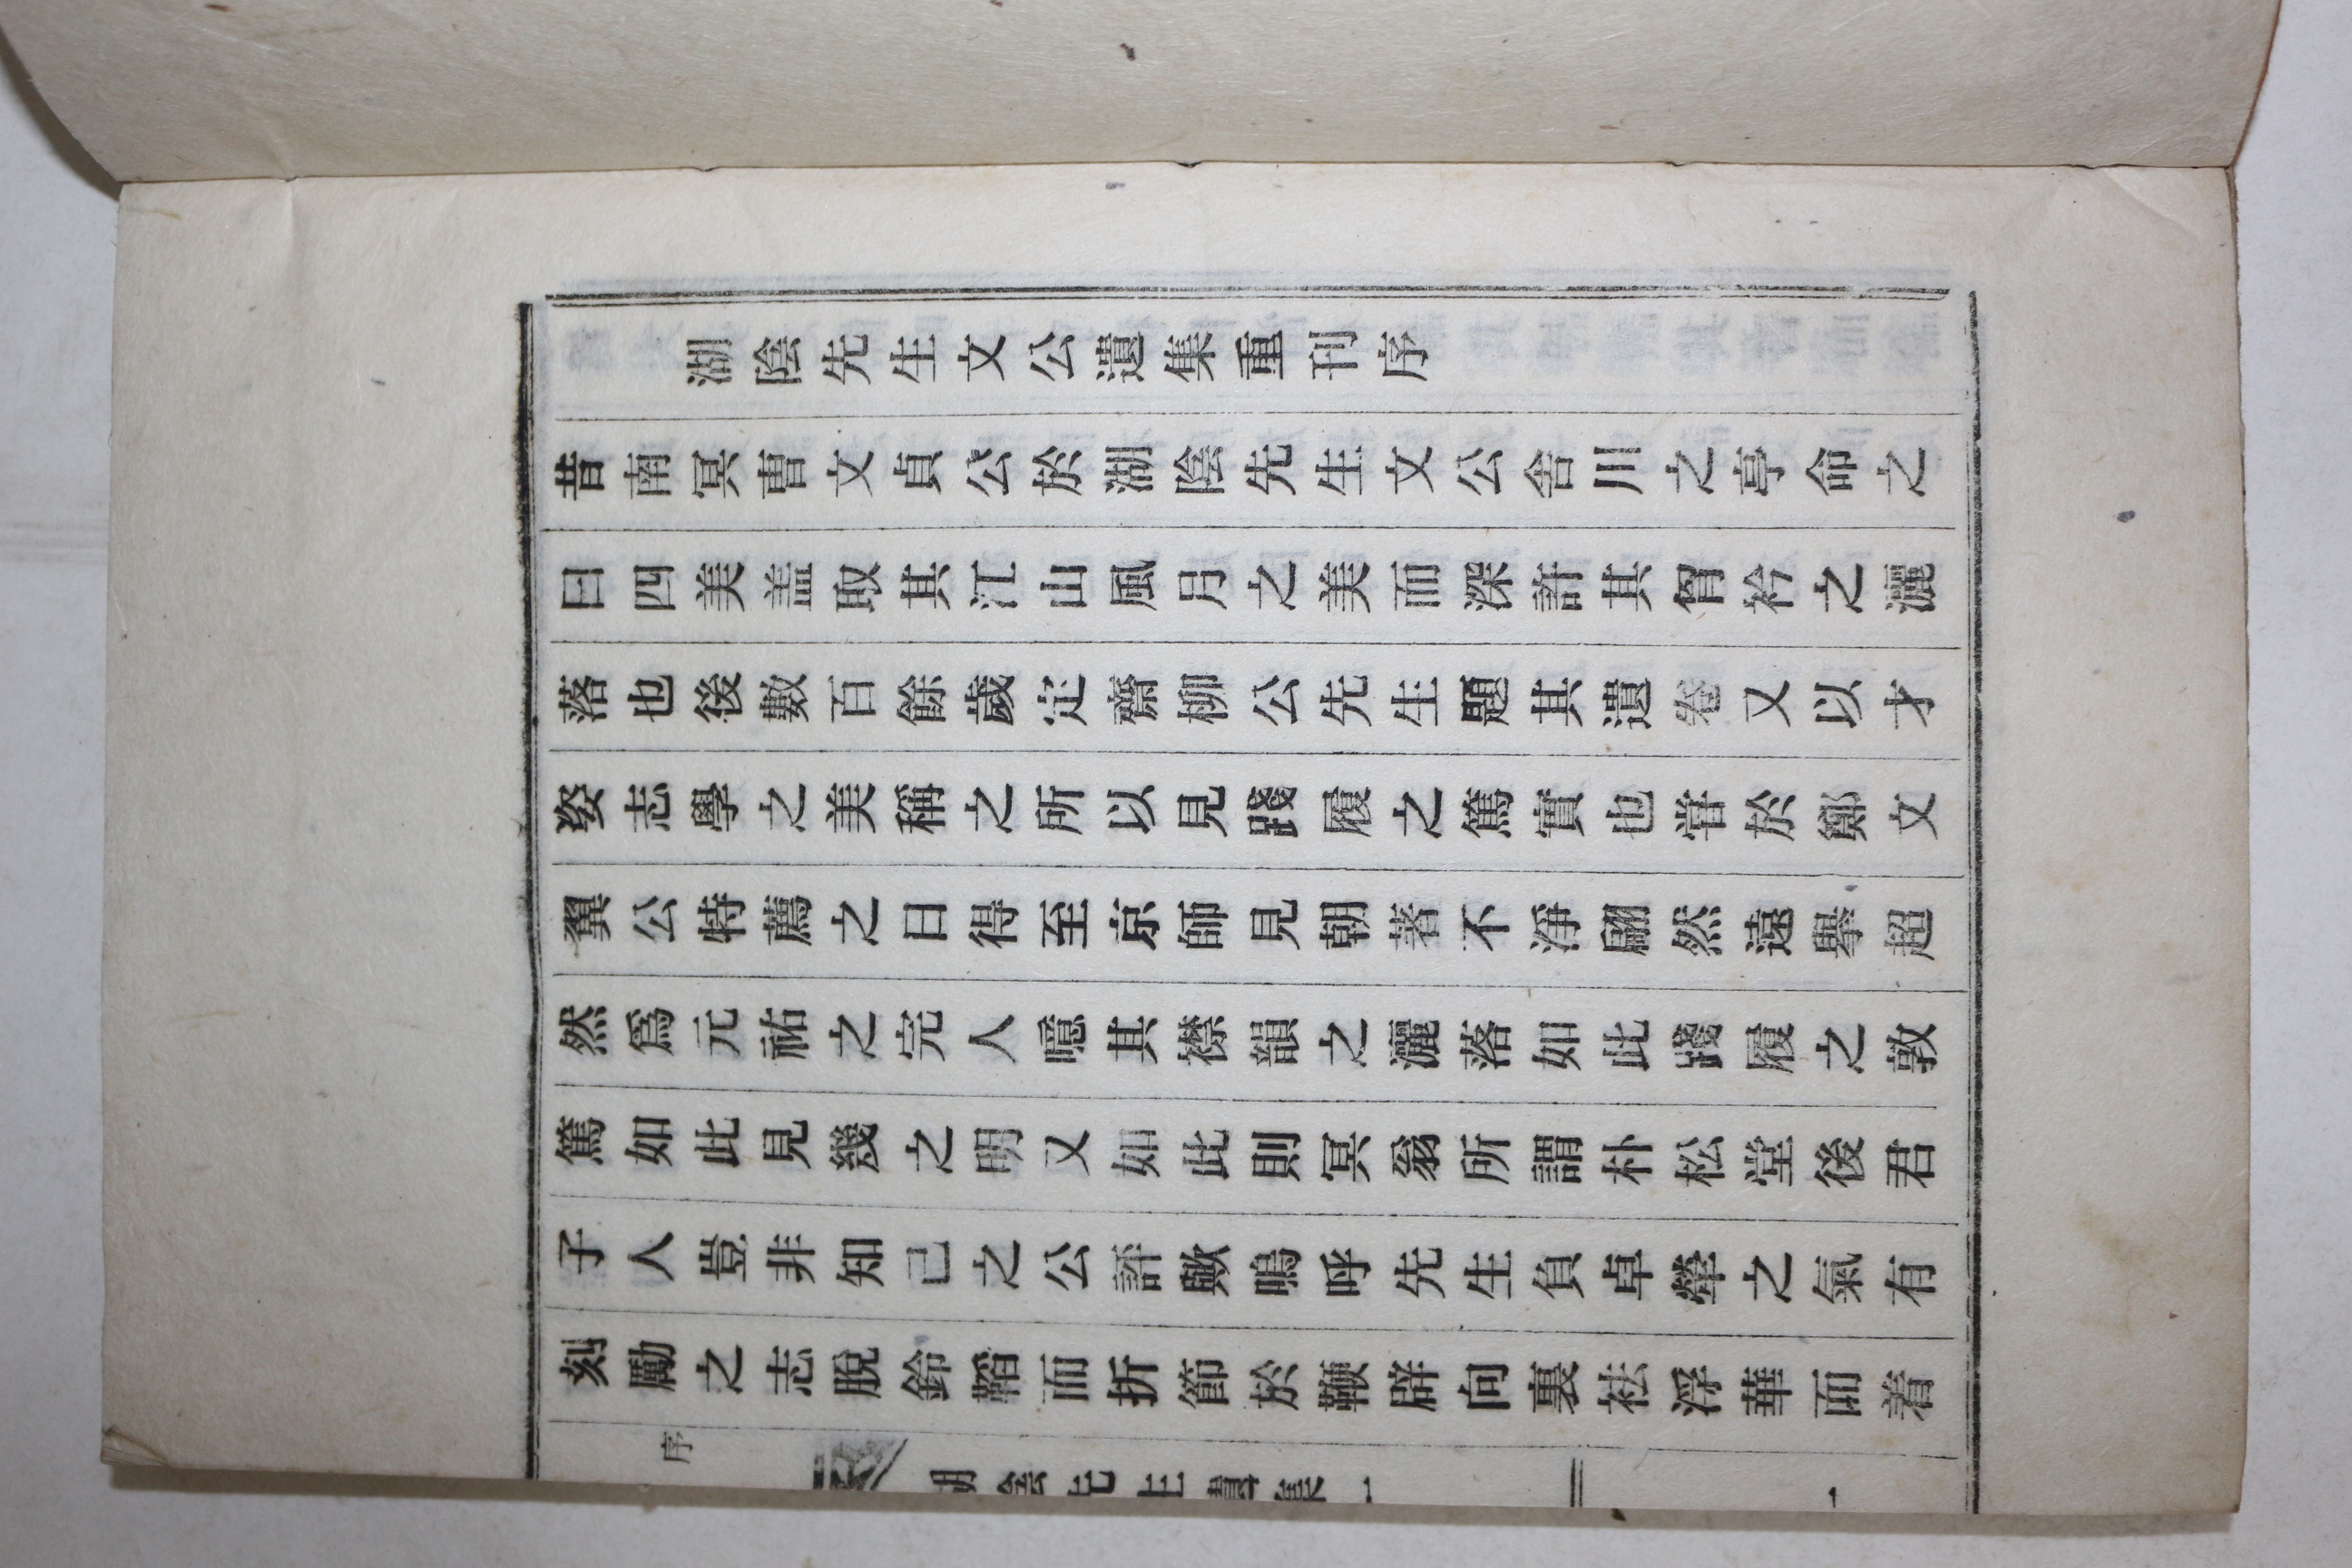 湖陰先生文公遺集重刊序
昔南冥曺文貞公於湖陰先生文公舍川之亭命之
曰四美盖取其江山風月之美而深許其胷衿之灑
落也後數百餘歲定齋柳公先生題其遺卷又以才
姿志學之美稱之所以見踐履之篤實也甞於鄭文
翼公特薦之日得至京師見朝著不淨翩然遠擧超
然爲元祐之完人噫其襟韻之灑落如此踐履之敦
篤如此見幾之明又如此則冥翁所謂朴松堂後君
子人豈非知己之公評歟嗚呼先生負卓犖之氣有
刻勵之志脫鈴韜而折節於鞭辟向裏袪浮華而着
序
湖陰先生實集一
一